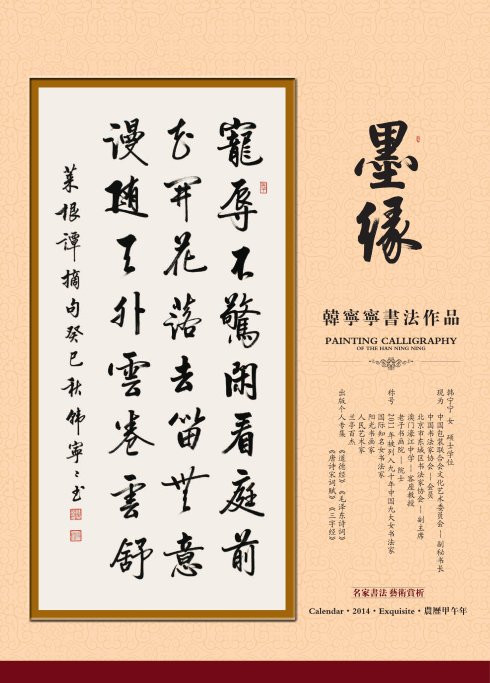 寵辱不驚閑看庭前
花開花落去留無意
謾随天外雲卷雲舒
菜根譚摘句癸巳秋韩寧〻书
墨缘
韓寧寧書法作品
PAINTING CALLIGRAPHY
OF THE HAN NING NING
韩宁宁 女 硕士学位
现为 中国包装联合会文化艺术委员会—副秘书长
中国书法家协会—会员
北京市东城区书法家协会—副主席
澳门濠江中学—客座教授
老子书画院—院士
称号 2011年被列入九十年中国九大女书法家
国际知名女书法家
阳光书画家
人民艺术家
兰亭百杰
出版个人专集 《道德经》《毛泽东诗词》
《唐诗宋词赋》《三字经》
名家書法 藝術賞析
Calendar·2014·Exquisite·農曆甲午年